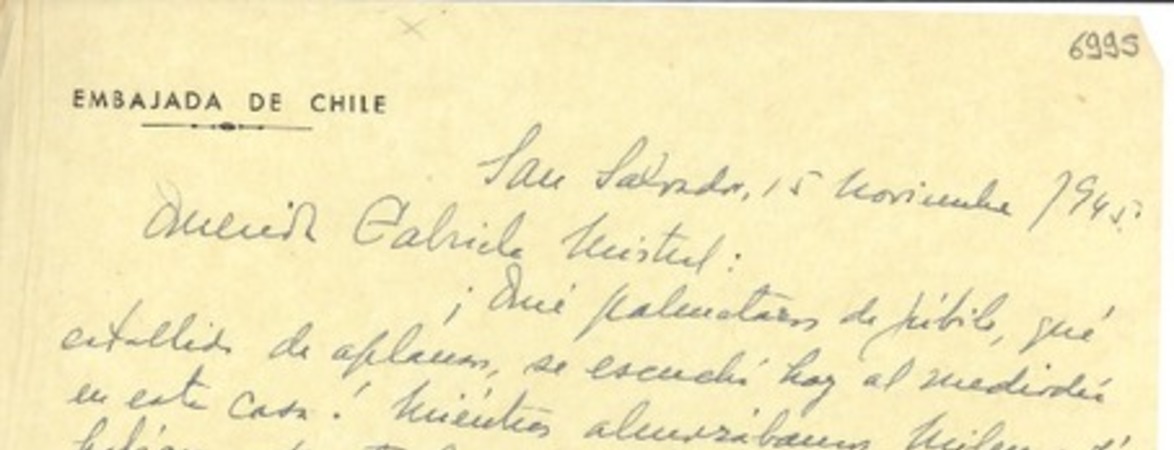 6995
EMBAJADA DE CHILE
San Salvador, 15 Noviembre 1945.
Querida Gabriela Mistral:
¡Qué palmotazos de júbilo, qué
estallido de aplausos, se escuchó hoy al mediodía
en esta casa! Mientras almorzábamos